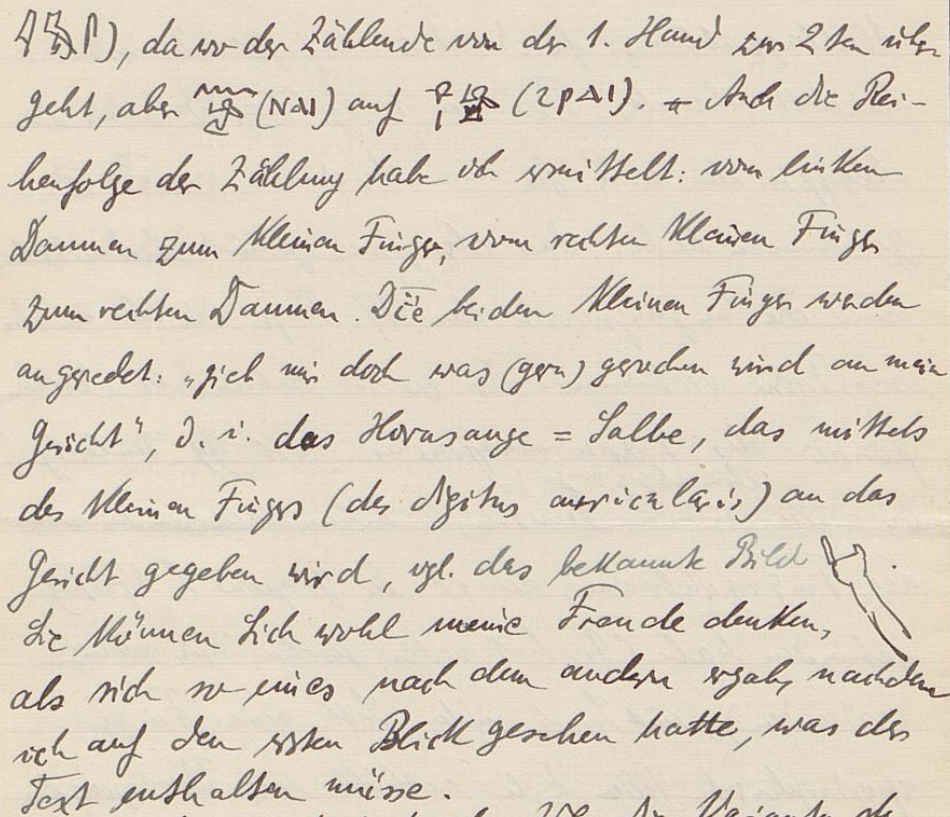 ), da wo der Zählende von der 1. Hand zur 2ten über
geht, aber (N∆1) auf (2P∆1). Auch die Rei-
henfolge der Zählung habe ich ermittelt: vom linken
Daumen zum kleinen Finger, vom rechten kleinen Finger
zum rechten Daumen. Die beiden kleinen Finger werden
angeredet: „gieb mir doch was (gern) gerochen wird an mein
Gesicht", d. i. das Horusauge = Salbe, das mittels
des kleinen Fingers (des digitus auricularis) an das
Gesicht gegeben wird, vgl. das bekannte Bild .
Sie können Sich wohl meine Freude denken,
als sich so eines nach dem andern ergab, nachdem
ich auf den ersten Blick gesehen hatte, was der
Text enthalten müsse.